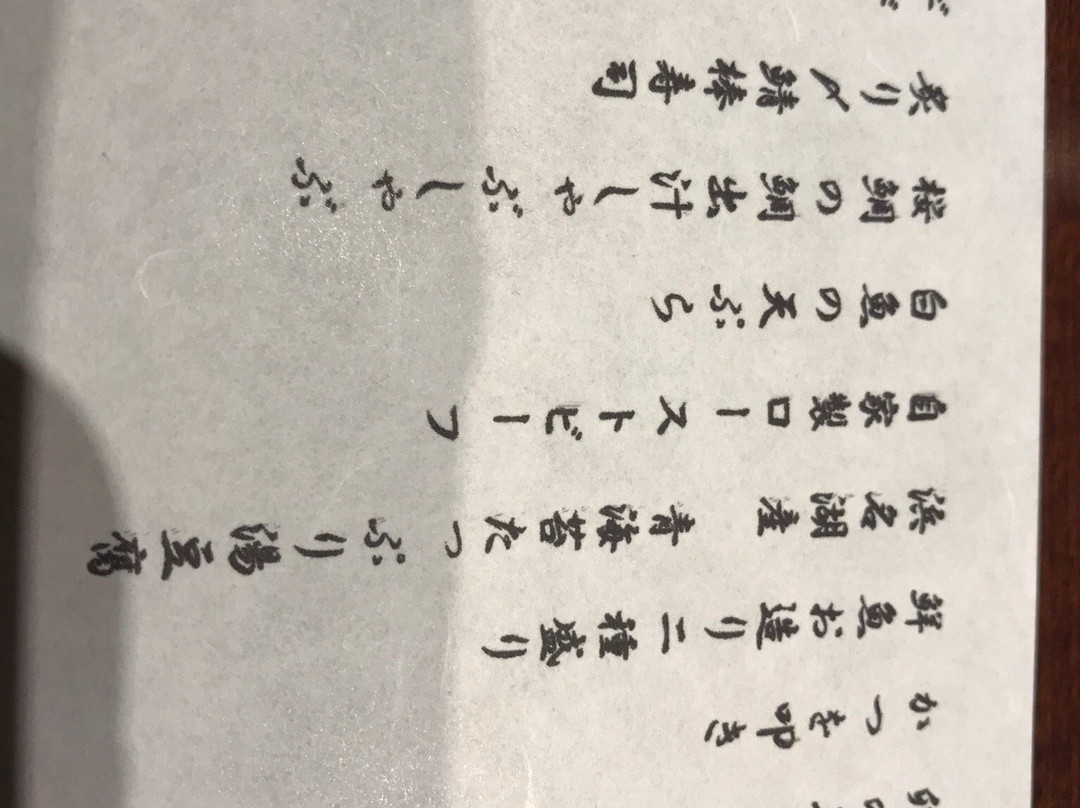 かつを叩き
鮮魚お造り二種盛り
浜名湖産 青海苔たっぷり湯豆腐
自家製ローストビーフ
白魚の天ぷら
桜鯛の鯛出汁しゃぶしゃぶ
炙り〆鯖棒寿司